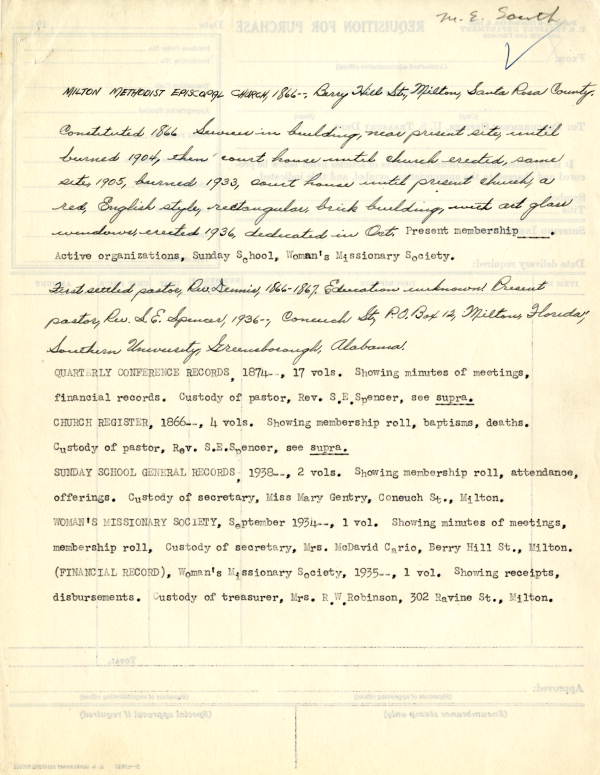 M. E. South
MILTON METHODIST EPISCOPAL CHURCH, 1866--. Berry Hill St., Milton, Santa Rosa County.
Constituted 1866. Services in building, near present site, until
burned 1904, then court house until church erected, same
site, 1905, burned 1933, court house until present church, a
red, English style, rectangular, brick building, with art glass
windows, erected 1936, dedicated in Oct. Present membership____.
Active organizations, Sunday School, Woman's Missionary Society.
First settled pastor, Rev. Dennis, 1866-1867. Education unknown. Present
pastor, Rev. S.E. Spencer, 1936--, Coneuch St., P.O. Box 12, Milton, Florida,
Southern University, Greensborough, Alabama.
QUARTERLY CONFERENCE RECORDS, 1874--, 17 vols. Showing minutes of meetings,
financial records. Custody of pastor, Rev. S.E.Spencer, see supra.
CHURCH REGISTER, 1866--, 4 vols. Showing membership roll, baptisms, deaths.
Custody of pastor, Rev. S.E.Spencer, see supra.
SUNDAY SCHOOL GENERAL RECORDS, 1938--, 2 vols. Showing membership roll, attendance,
offerings. Custody of secretary, Miss Mary Gentry, Coneuch St., Milton.
WOMAN'S MISSIONARY SOCIETY, September 1934--, 1 vol. Showing minutes of meetings,
membership roll, Custody of secretary, Mrs. McDavid Cario, Berry Hill St., Milton.
(FINANCIAL RECORD), Woman's Missionary Society, 1935--, 1 vol. Showing receipts,
disbursements. Custody of treasurer, Mrs. R.W.Robinson, 302 Ravine St., Milton.